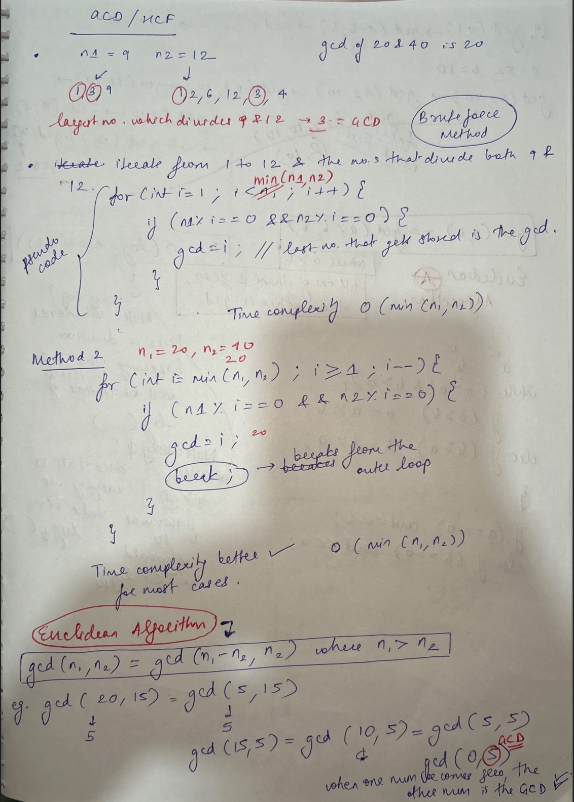 GCD/HCF
• n1 = 9   n2 = 12   gcd of 20 & 40 is 20
1, 3, 9   1, 2, 6, 12, 3, 4
largest no. which divides 9 & 12 → 3 = GCD
Bruteforce
Method
• iterate from 1 to 12 & the no.s that divide both 9 &
12.
min(n1, n2)
for (int i=1; i< ; i++) {
if (n1 % i == 0 && n2 % i == 0) {
pseudo
code
gcd = i; // last no. that gets stored is the gcd.
}
}
Time complexity O(min(n1, n2))
Method 2   n1 = 20, n2 = 40
20
for (int i= min(n1, n2); i ≥ 1; i--) {
if (n1 % i == 0 && n2 % i == 0) {
gcd = i; 20
break; → breaks from the
outer loop
}
}
Time complexity better ✓   O(min(n1, n2))
for most cases.
Euclidean Algorithm
gcd(n1, n2) = gcd(n1-n2, n2) where n1 > n2
eg. gcd(20, 15) = gcd(5, 15)
↓ 5   ↓ 5
gcd(15, 5) = gcd(10, 5) = gcd(5, 5)
GCD
gcd(0, 5)
when one num becomes zero, the
other num is the GCD ✓